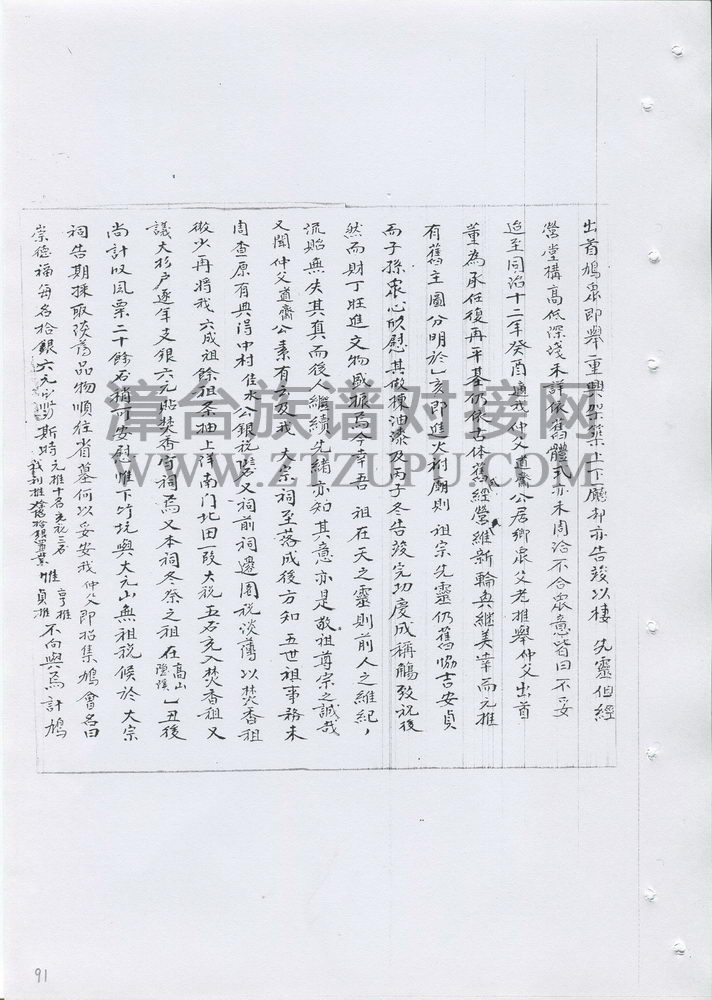 出首鳩衆即舉重興架築上下廳却亦告竣以棲 先靈但經
營堂構高低深淺未詳依舊體式亦未周洽不合衆意皆曰不妥
迨至同治十二年癸酉適我仲父道齋公居鄉衆父老推舉仲父出首
董為承任復再平基仍依古体舊經營維新輪奐繼美幸而元推
有舊主圖分明於乙亥即進火祔廟則 祖宗先靈仍舊協吉安貞
而子孫衆心欣慰其做揀油漆及丙子冬告竣完功慶成稱觴致祝後
然而財丁旺進文物盛振焉今幸吾 祖在天之靈則前人之維紀，
流貽無失其真而後人繼續先緒亦知其意亦是敬祖尊宗之誠哉
又聞仲父道齋公素有云及我 大宗祠至落成後方知五世祖事務未
周查原有與得中村佳水公銀税暨又祠前祠邊園税淡薄以焚香祖
微少再將我六成祖餘租茶抽上洋南门北田一段大税五石充入焚香祖又
議大杉户逐年支銀六元貼焚香守祠焉又本祠冬祭之祖在高山隐溪乙丑後
尚計収風粟二十餘石稍可安慰惟下竹坑與大元山無祖税候於 大宗
祠告期採取淡薄品物順往省墓何以妥安我仲父即招集鳩會名曰
崇德福每名拾銀六元 斯時元推十名 惟亨推貞推不向與焉計鳩
91
漳台族谱对接网
WWW.ZTZUPU.COM